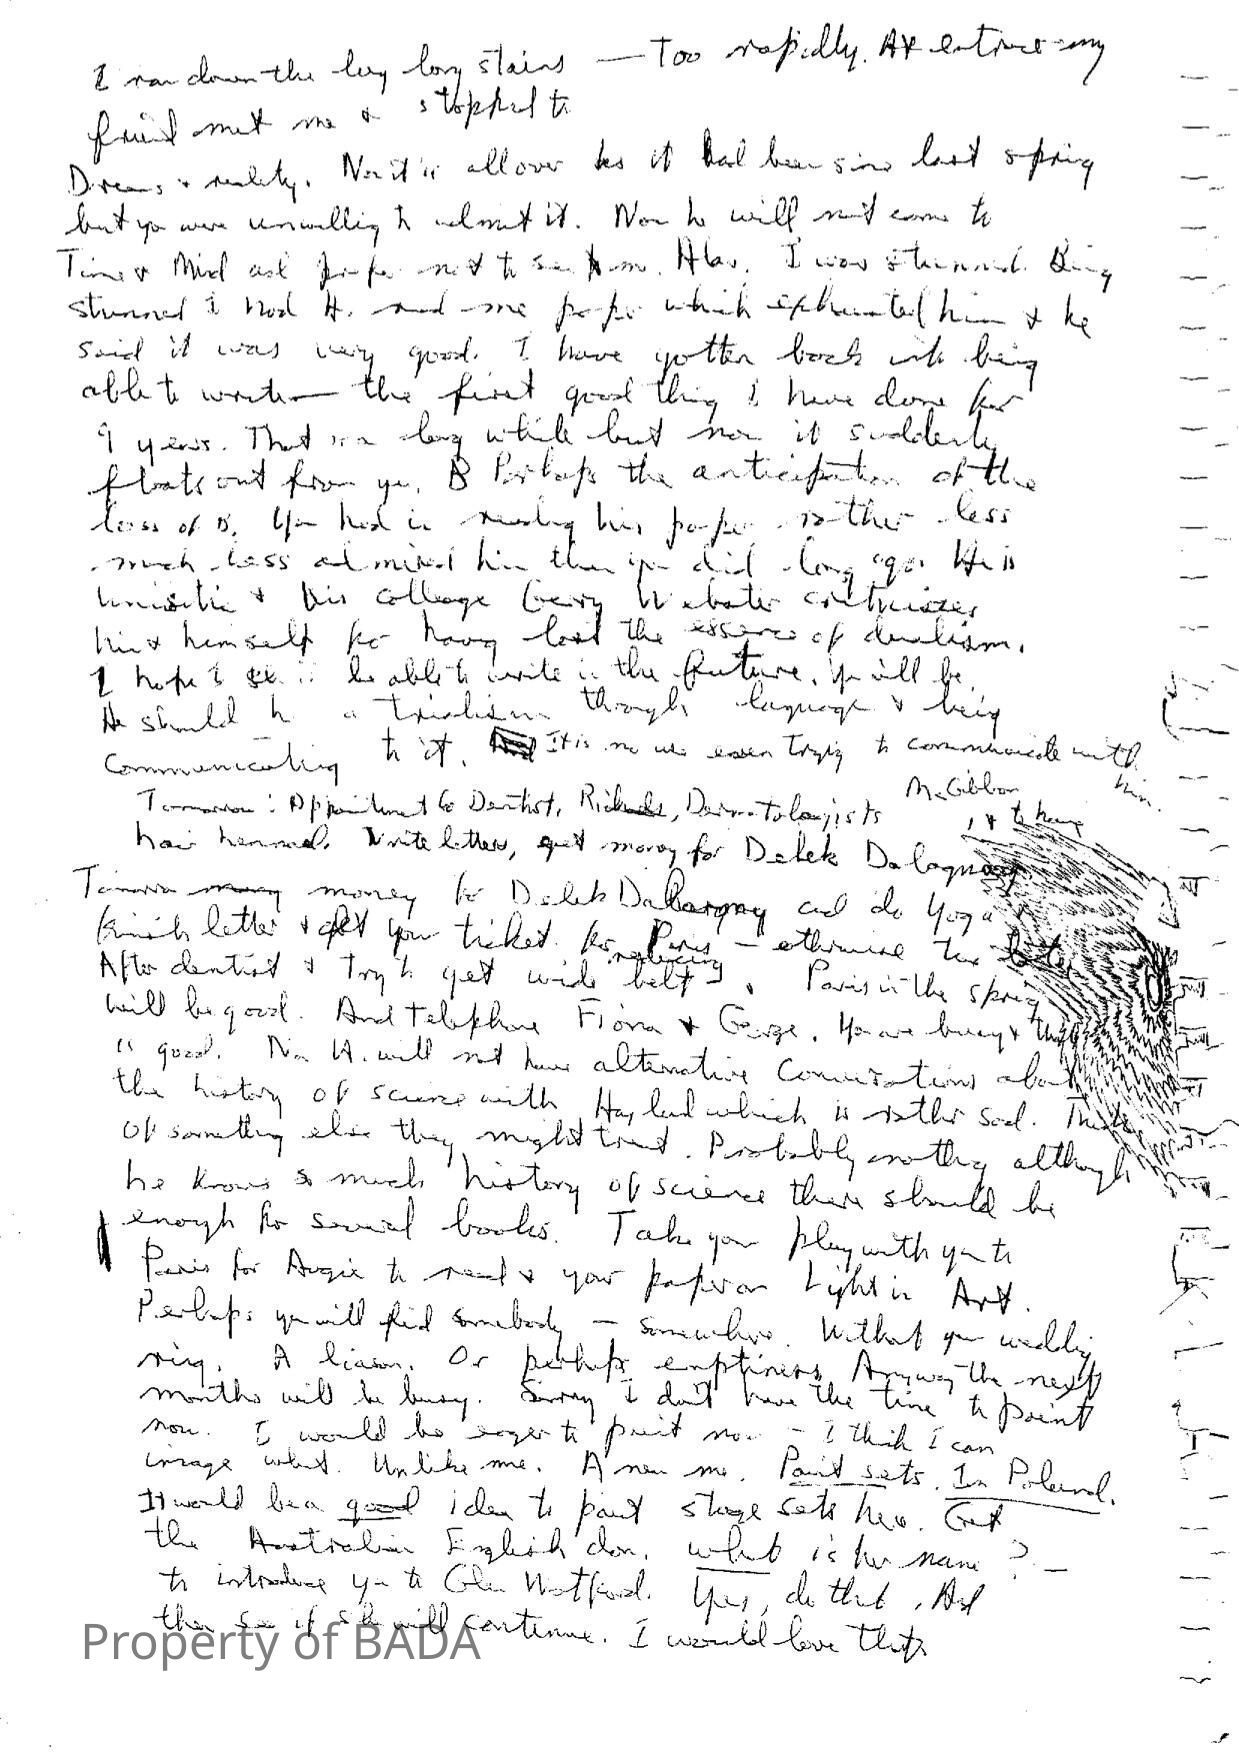 I ran down the long stairs — Too rapidly. At entrance my
friend met me & stopped to
Dreams & reality. Now it is all over as it had been since last spring
but you were unwilling to admit it. Now he will not come to
Time & Mind and prefer not to see him. Alas. I was stunned. Being
stunned I had H. read me paper which exhausted him & he
said it was very good. I have gotten back into being
able to write — the first good thing I have done for
9 years. That is a long while but now it suddenly
floats out from you. Perhaps the anticipation of the
loss of B. You had in reading his paper rather less
much less admired him than you did long ago. He is
& his colleage Gerry Webster criticizes
him & himself for having lost the essence of dualism.
I hope I will be able to write in the future. You will be.
He should a trialism through language & being
Communicating to it. It is no use even trying to communicate with
him.
Tomorrow: Appointment to Dentist, Richards, Dermatologists McGibbon
, & to have
hair hennaed. Write letters, get money for Delek
Tomorrow money to Delek and do Yoga
finish letter & get your ticket for Paris — otherwise too late
After dentist & try to get wide reducing belt. Paris in the spring
will be good. And telephone Fiona & George. You are busy & that
is good. Now H. will not have alternative Conversations about
the history of science with Hayland which is rather sad. Think
of something else they might treat. Probably nothing although
he knows so much history of science there should be
enough for several books. Take your play with you to
Paris for Augie to read & your paper on Light in Art.
Perhaps you will find somebody — somewhere. Without your wedding
ring. A liason. Or perhaps emptiness. Anyway the next
months will be busy. Sorry I don't have the time to paint
now. I would be eager to paint now — I think I can
image what. Unlike me. A new me. Paint sets. In Poland.
It would be a good idea to paint stage sets here. Get
the Australian English don. what is her name? —
to introduce you to Glen Watford. Yes, do that. And
then see if she will continue. I would love that.
Property of BADA